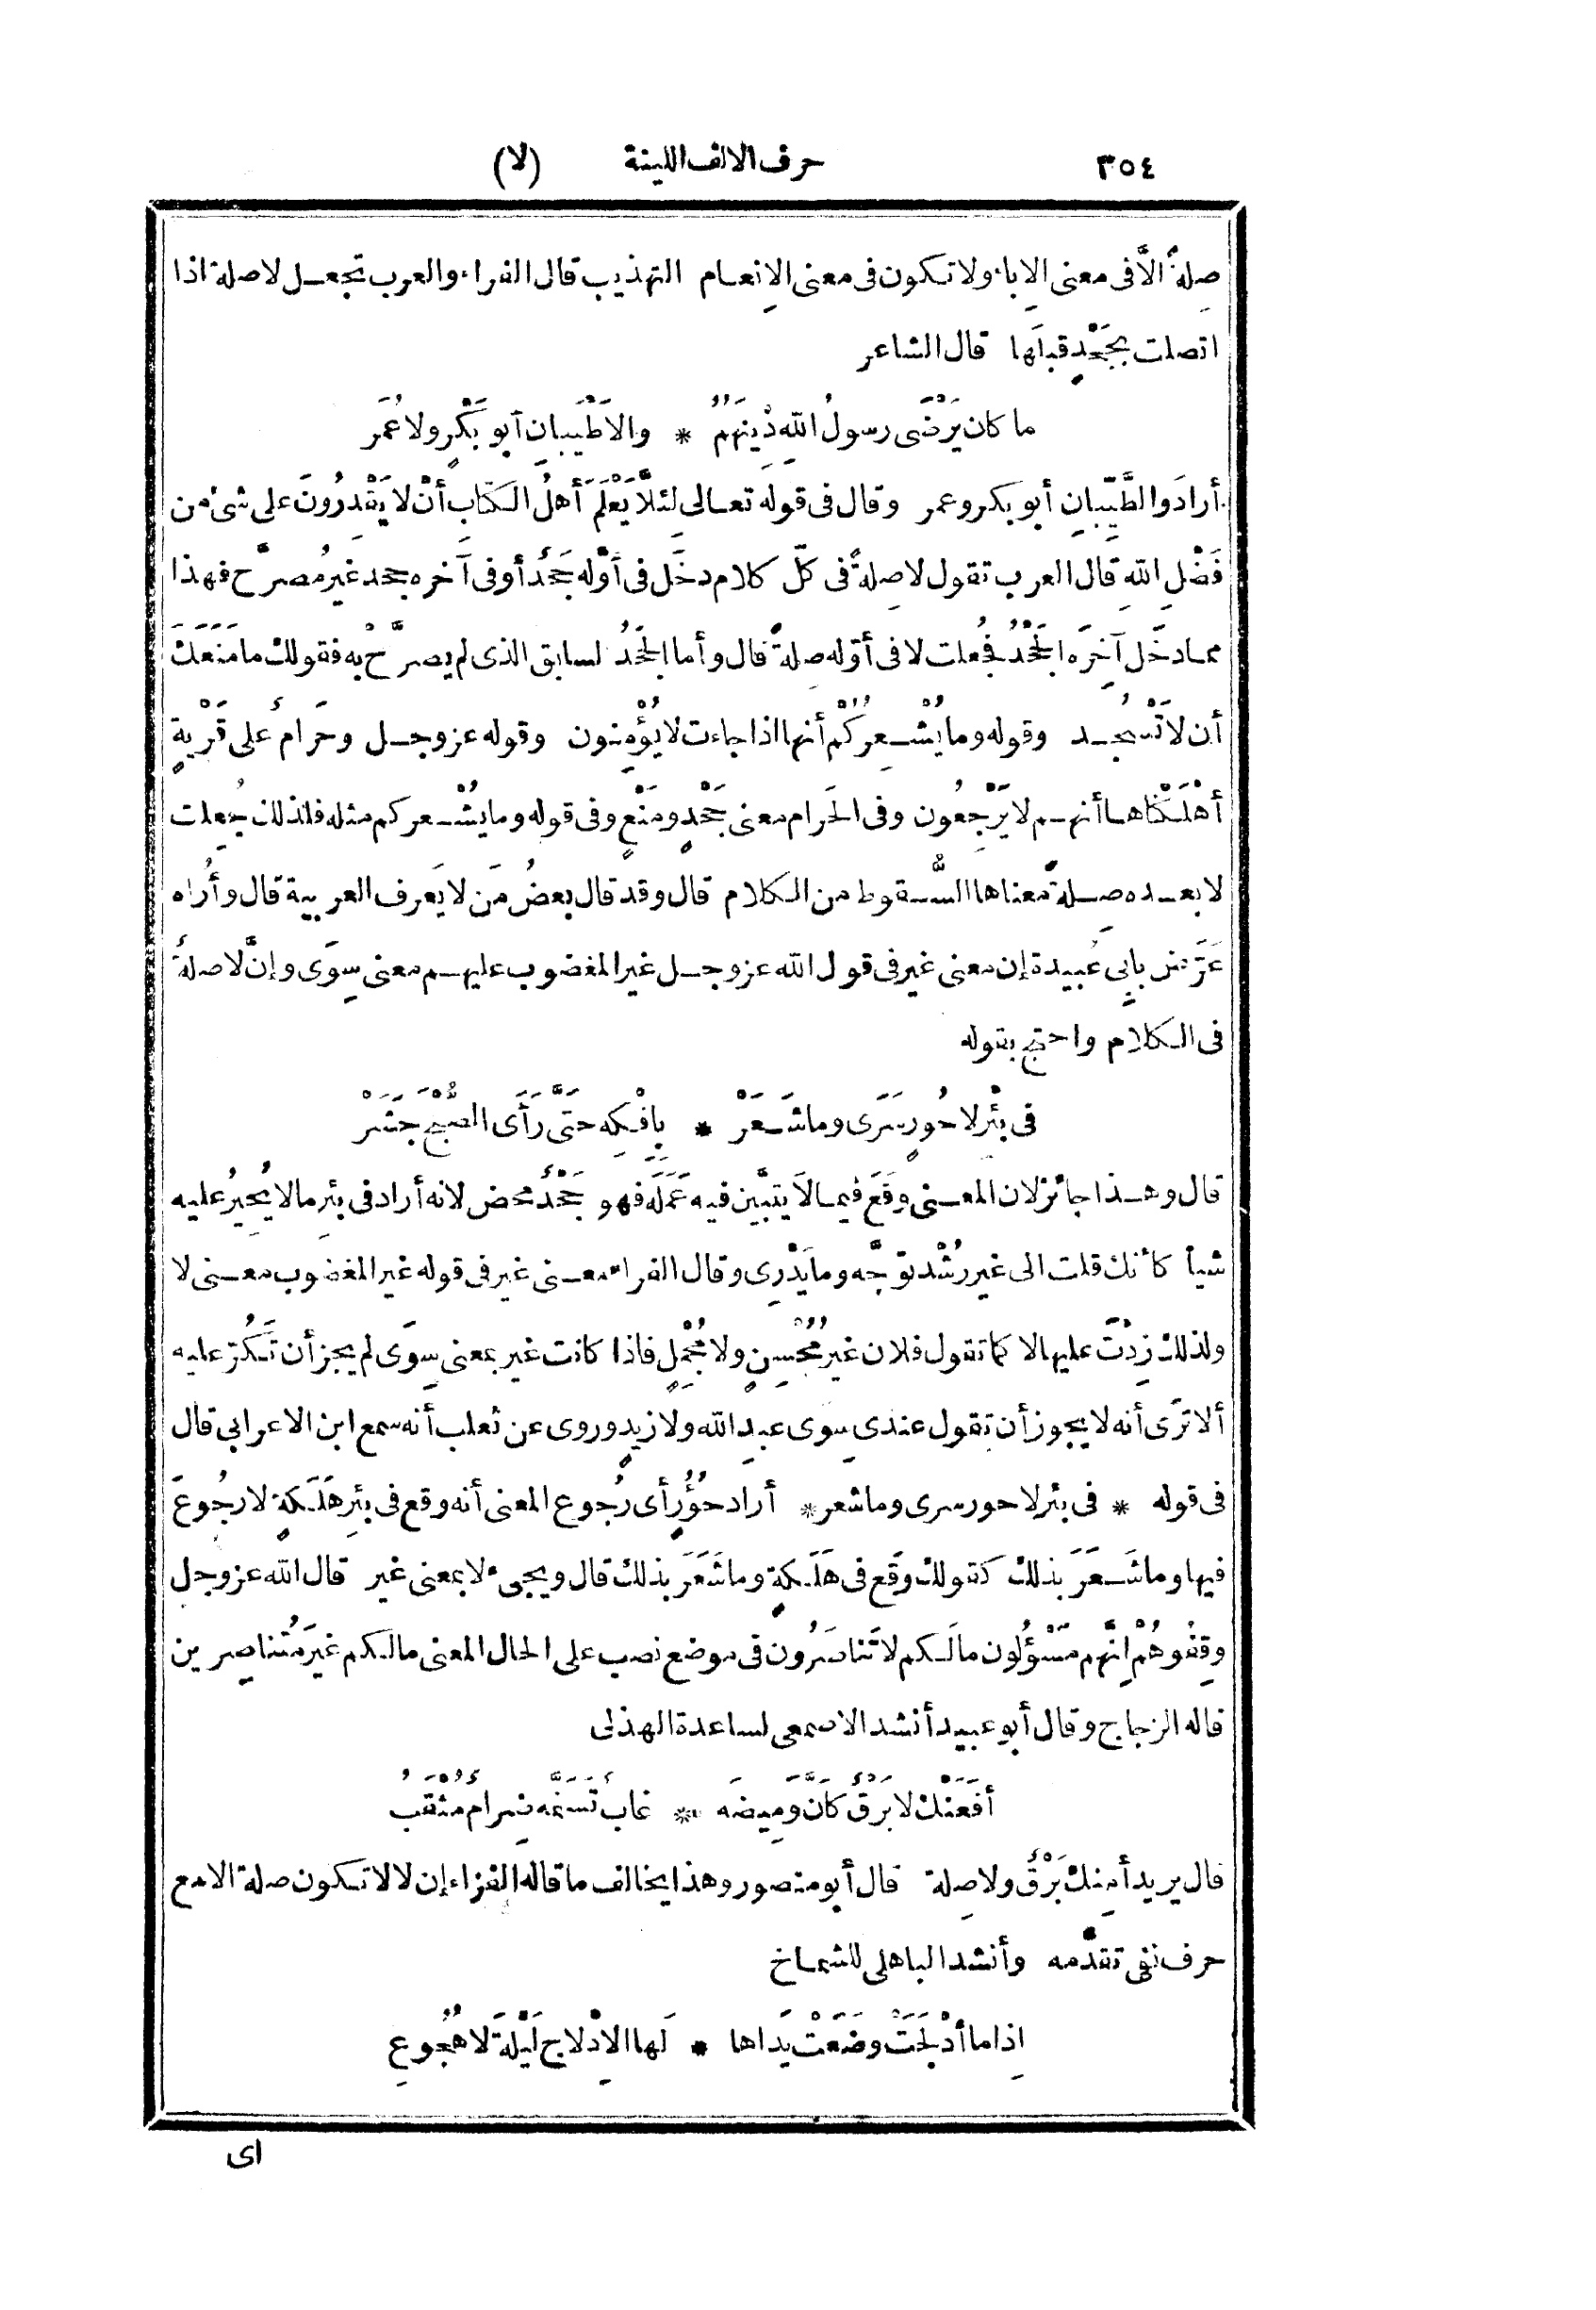 ٣٥٤ حرف الالف اللينة (لا)
صِلةً الَّا فى معنى الاِباء ولا تكون فى معنى الاِنعام التهذيب قال الفراء والعرب تجعل لا صلة اذا
اتصلت بجَحْدٍ قبلَها قال الشاعر
ما كان يَرْضَى رسولُ اللهِ دِينَهُمُ * والاَطْيَبانِ أبو بَكْرٍ ولا عُمَر
أرادَ والطَّيِّبانِ أبو بكر وعمر وقال فى قوله تعالى لِئلَّا يَعْلَمَ أهلُ الكتاب أنْ لا يَقْدِرُونَ على شىء من
فَضْلِ اللهِ قال العرب تقول لا صِلةً فى كلّ كلام دخَل فى أوّله جَحْدٌ أو فى آخره جحد غيرُ مصرَّح فهذا
مما دخَل آخِرَه الجَحْدُ فجُعلت لا فى أوّله صلةً قال وأما الجَحْدُ لسابق الذى لم يصرَّح به فقولك ما مَنَعَكَ
أن لا تَسْجُد وقوله وما يُشْعِرُكُمْ أنها اذا جاءت لا يُؤْمِنون وقوله عز وجل وحَرامٌ على قَرْيةٍ
أهْلَكْناها أنهم لا يَرْجِعُون وفى الحَرام معنى جَحْدٍ ومَنْعٍ وفى قوله وما يُشْعركم مثله فلذلك جُعِلت
لا بعده صِلةً معناها السُّقوط من الكلام قال وقد قال بعضُ مَن لا يَعرف العربية قال وأُراه
عَرَّضَ بأبِى عُبيدة إن معنى غير فى قول الله عز وجل غير المغضوب عليهم معنى سِوَى وإنَّ لا صلةٌ
فى الكلام واحتج بقوله
فى بئْرِ لا حُورٍ سَرَى وما شَعَرْ * بِإفْكِه حتَّى رَأَى الصُّبْحَ جَشَرْ
قال وهذا جائز لان المعنى وقَعَ فيما لا يتبيَّن فيه عَمَلَه فهو جَحْدٌ محض لانه أراد فى بئرِ ما لا يُحِيرُ عليه
شيأ كأنك قلت الى غير رُشْد توجَّه وما يَدْرِى وقال الفراء معنى غير فى قوله غير المغضوب معنى لا
ولذلك زِدْتَ عليها لا كما تقول فلان غيرُ مُحْسِنٍ ولا مُجْمِلٍ فاذا كانت غير بمعنى سِوَى لم يجز أن تَكُرّ عليه
ألا ترَى أنه لا يجوز أن تقول عندى سِوى عبدِ الله ولا زيدٍ وروى عن ثعلب أنه سمع ابن الاعرابي قال
فى قوله * فى بئر لا حور سرى وما شعر * أراد حُؤُرٍ أى رُجوع المعنى أنه وقع فى بئرِ هَلَكةٍ لا رجُوعَ
فيها وما شَعَرَ بذلك كقولك وقَع فى هَلَكةٍ وما شَعَرَ بذلك قال ويجىء لا بمعنى غير قال الله عز وجل
وقِفُوهُمْ إنَّهم مَسْؤُلون ما لَكم لا تَناصَرُون فى موضع نصب على الحال المعنى ما لكم غيرَ مُتناصِرين
قاله الزجاج وقال أبو عبيد أنشد الاصمعى لساعدة الهذلى
أفَعَنْك لا بَرْقٌ كأنَّ وَمِيضَه * غابٌ تَسَنَّمه ضِرامٌ مُثْقَبُ
قال يريد أمِنك بَرْقٌ ولا صِلة قال أبو منصور وهذا يخالف ما قاله الفراء إن لا لا تكون صلة الا مع
حرف نفى تقدَّمه وأنشد الباهلى للشماخ
اِذا ما أدْلَجَتْ وضَعَتْ يَداها * لَها الاِدْلاج لَيْلةَ لا هُجُوعِ
اى